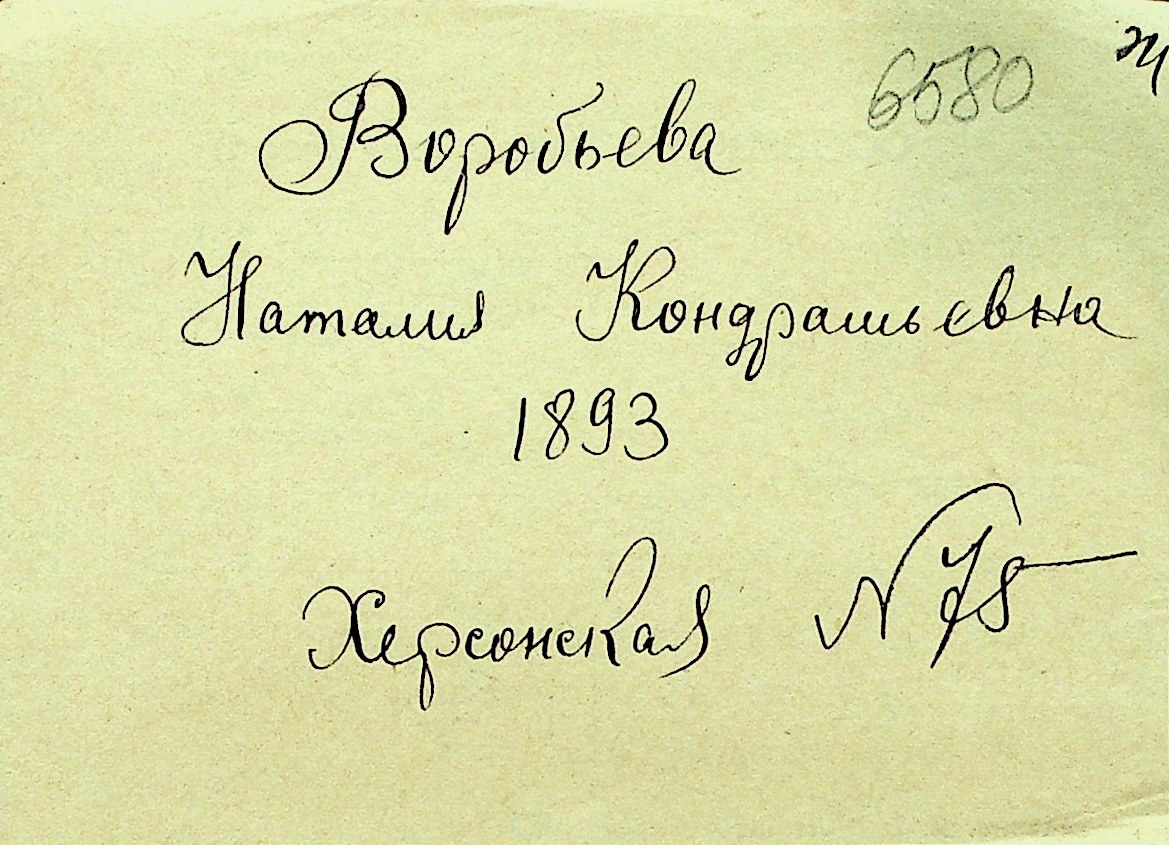 6580
Воробьева
Наталия Кондратьевна
1893
Херсонская N 78